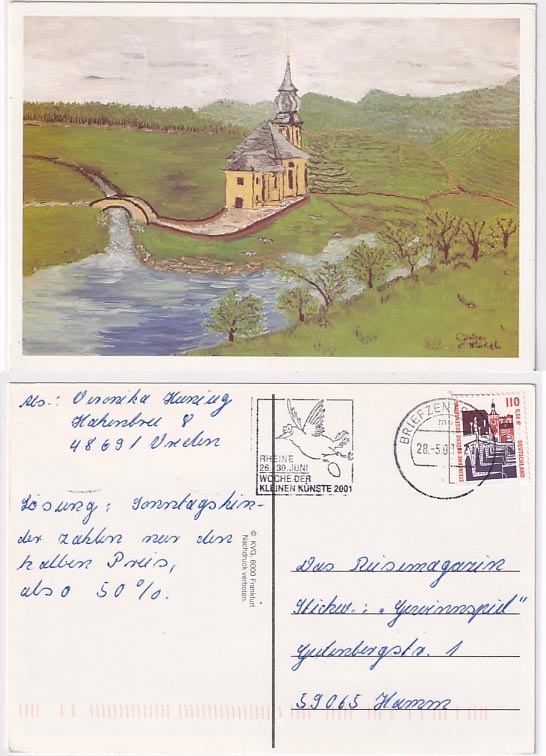 Abs.: Veronika Herzing
48691 Vreden
Lösung: Sonntagskin-
der zahlen nur den
halben Preis,
also 50%.
© KVG, 6000 Frankfurt
Nachdruck verboten.
RHEINE
26.-30. JUNI
WOCHE DER
KLEINEN KÜNSTE 2001
BRIEFZEN
28.-5.0
110
0,56 €
DEUTSCHLAND
STEINERNE BRÜCKE REGENSBURG
Das Reisemagazin
Stichw.: „Gewinnspiel"
Gutenbergstr. 1
59065 Hamm